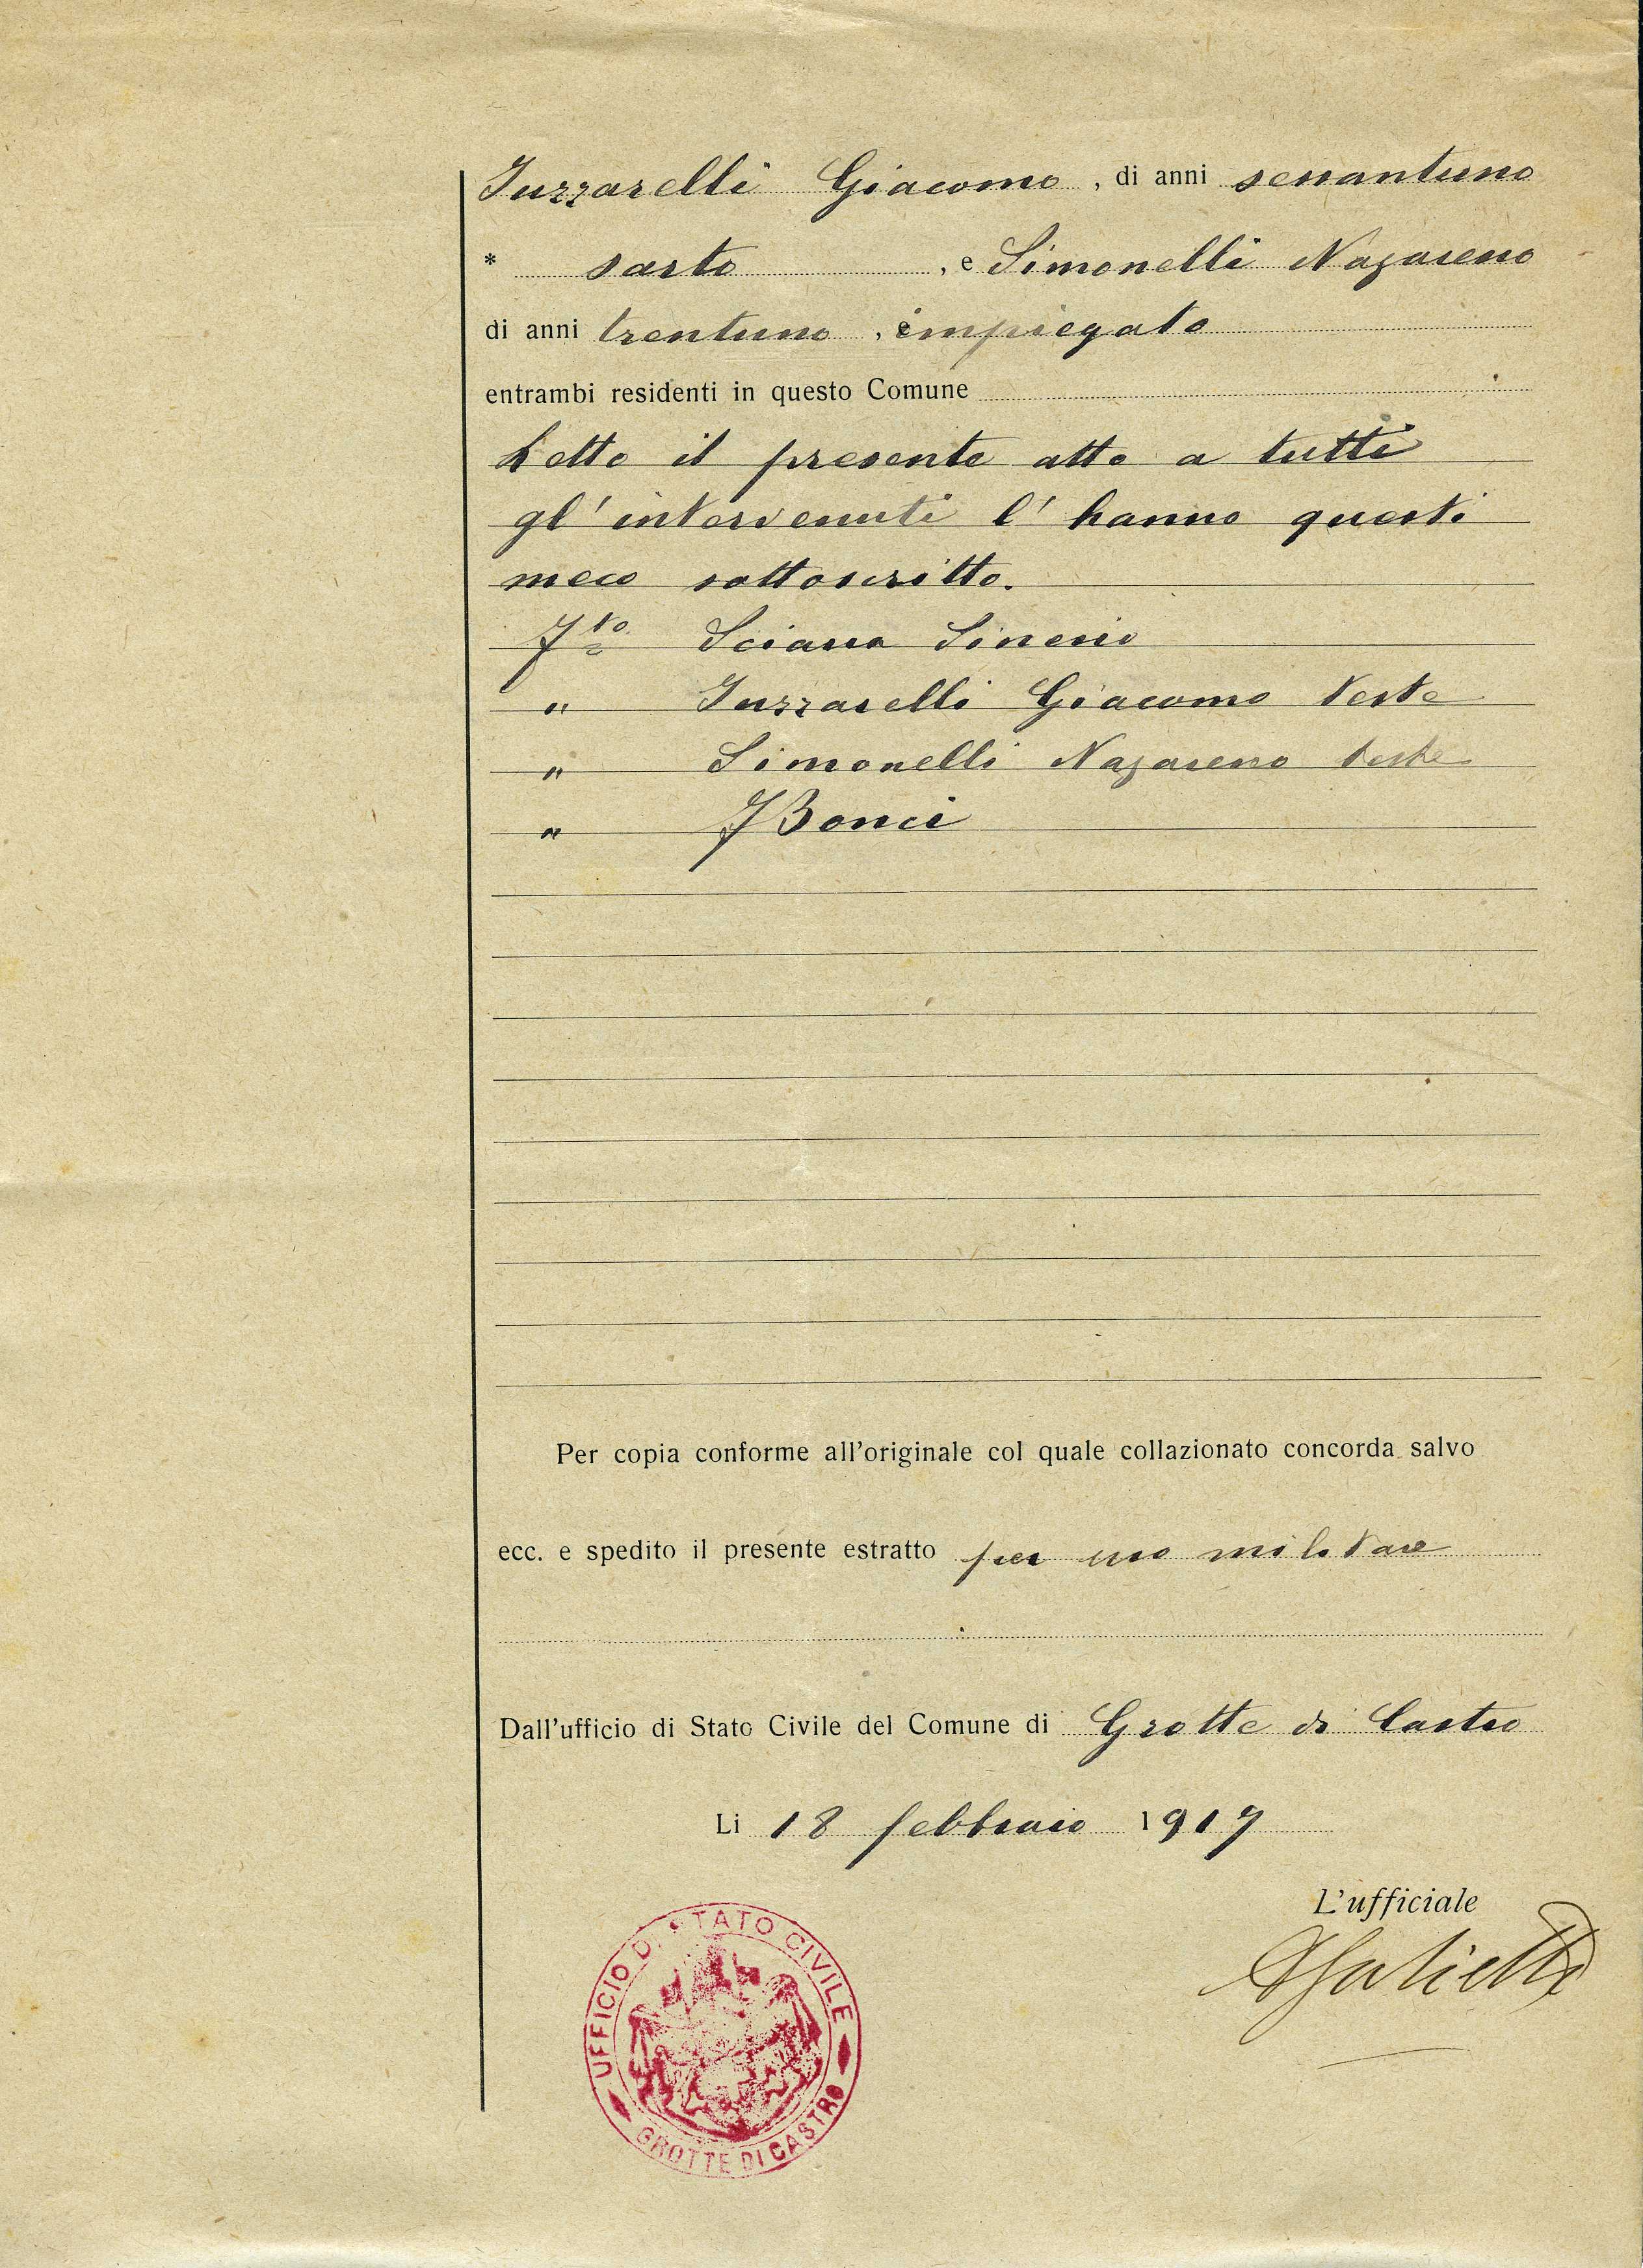 Juzzarelli Giacomo, di anni sessantuno
* sarto, e Simonelli Nazareno
di anni trentuno, impiegato
entrambi residenti in questo Comune
Letto il presente atto a tutti
gl'intervenuti l'hanno questi
meco sottoscritto.
Fto Sciarra Sinesio
" Juzzarelli Giacomo teste
" Simonelli Nazareno teste
" F Bonci
Per copia conforme all'originale col quale collazionato concorda salvo
ecc. e spedito il presente estratto per uso militare
Dall'ufficio di Stato Civile del Comune di Grotte di Castro
Li 18 febbraio 1917
L'ufficiale
UFFICIO DI STATO CIVILE
GROTTE DI CASTRO